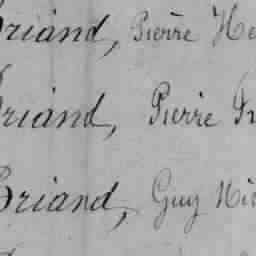 Briand, Pierre He
Briand, Pierre Fr
Briand, Guy Nic